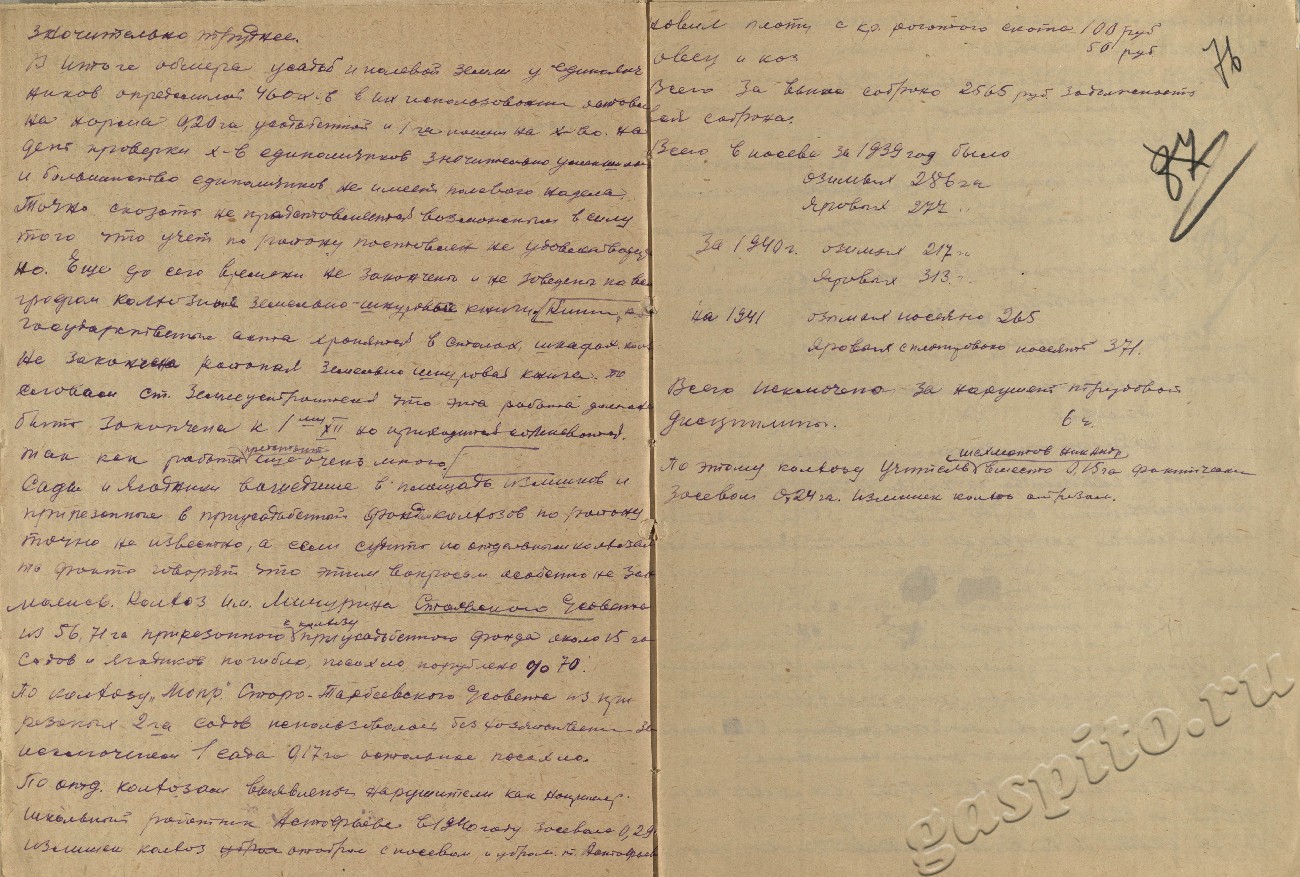 значительно труднее.
В итоге обмера усадеб и полевой земли у единолич
ников определилось 460 х-в в их использовании
на норма 0,20 га усадебной и 1 га пашни на х-во. На
день проверки х-в единоличников значительно
и большинство единоличников не имеет полевого надела.
Точно сказать не представляется возможным в силу
того что учет по району поставлен не удовлетворитель
но. Еще до сего времени не закончены и не заведены по
колхозные земельно-шнуровые книги
государственные акты хранятся в столах, шкафах
не закончена районная земельно шнуровая книга. По
ст. землеустроителя что эта работа должна
быть закончена к 1 XII но приходится сомневаться.
так как работы предстоит еще очень много.
Сады и ягодники вошедшие в площадь излишков и
прирезанные в приусадебный фонд колхозов по району
точно не известно, а если судить по отдельным колхозам
то факты говорят что этим вопросом особенно не зани
мались. Колхоз им. Мичурина Стаевского с/совета
из 56,71 га прирезанного к колхозу приусадебного фонда около 15 га
садов и ягодников погибло, посохло порублено % 70.
По колхозу "Мопр" Старо-Тарбеевского с/совета из при
резаных 2 га садов использовались без хозяйственно за
исключением 1 сада 0,17 га остальное посохло.
По отд. колхозам выявлены нарушители как например
школьный работник в 1940 году засевала 0,29
излишек колхоз отобрал с посевом и убрал.
платы с кр. рогатого скота 100 руб
овец и коз 50 руб
Всего за выпас собрано 2565 руб. задолженность
вся собрана.
Всего в посева за 1939 год было
озимых 286 га
яровых 277 "
За 1940 г. озимых 217 "
яровых 313 "
На 1941 озимых посеяно 265
яровых сплонировано посеять 371.
Всего исключено за нарушен трудовой
дисциплины. 6 ч.
По этому колхозу учитель вместо 0,15 га фактически
засевал 0,24 га. излишек колхоз отрезал.
76
87
gaspito.ru